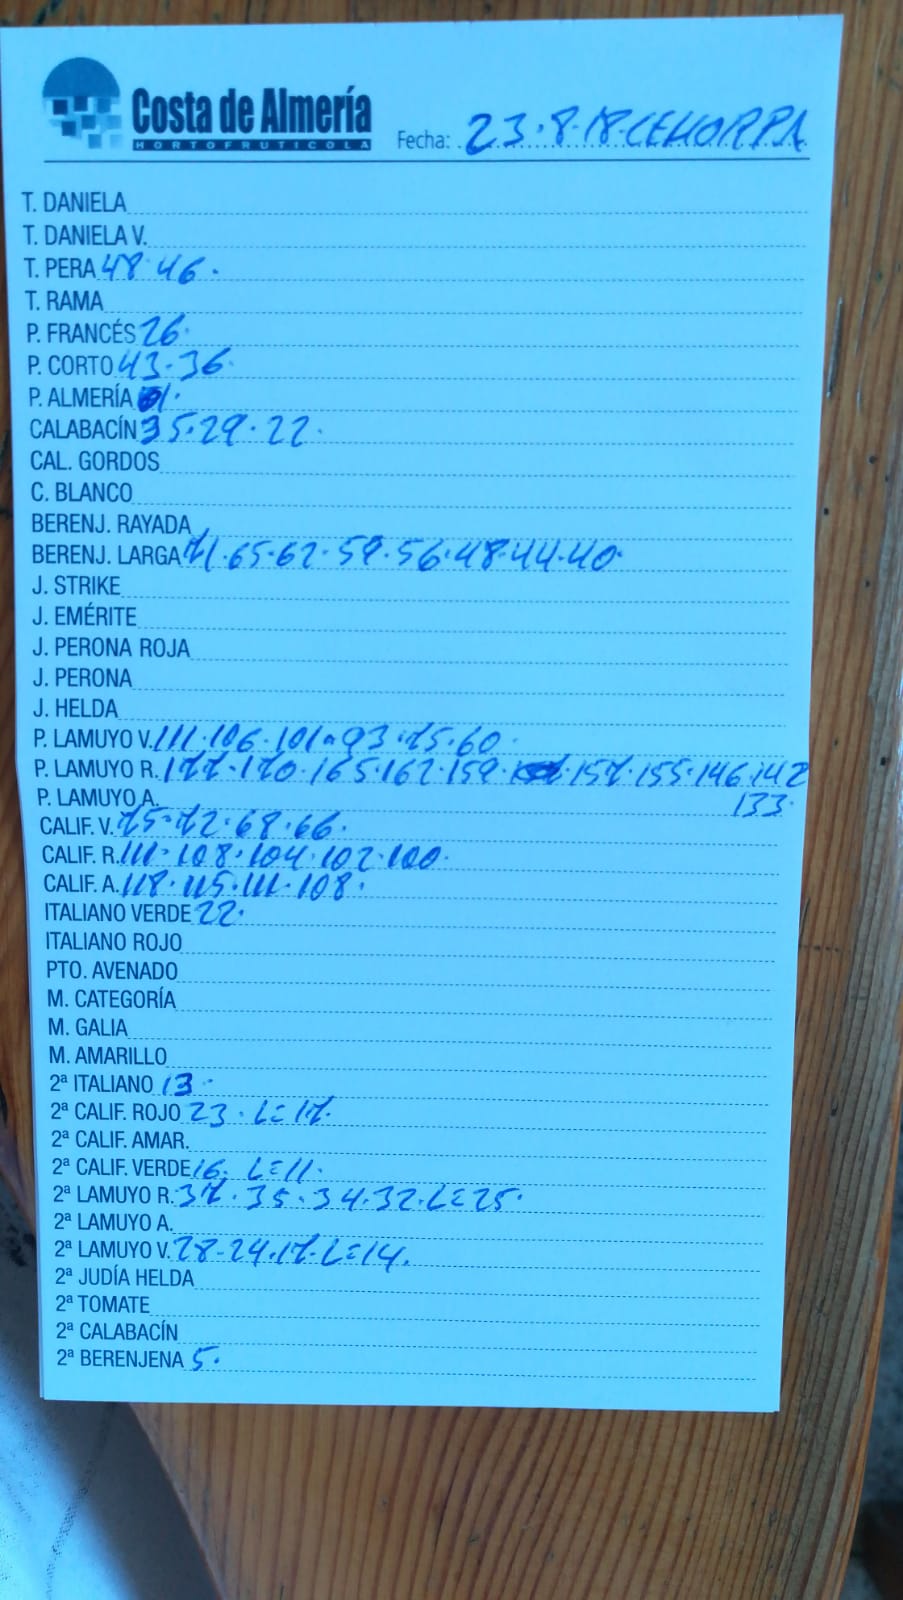 Costa de Almería
HORTOFRUTICOLA
Fecha: 23.8.18.CEHORPA
T. DANIELA
T. DANIELA V.
T. PERA 48 46.
T. RAMA
P. FRANCÉS 26.
P. CORTO 43.36.
P. ALMERÍA
CALABACÍN 35.29.22.
CAL. GORDOS
C. BLANCO
BERENJ. RAYADA
BERENJ. LARGA 71.65.62.59.56.48.44.40.
J. STRIKE
J. EMÉRITE
J. PERONA ROJA
J. PERONA
J. HELDA
P. LAMUYO V. 111.106.101.93.75.60.
P. LAMUYO R. 177.170.165.162.159.157.155.146.142
P. LAMUYO A. 133.
CALIF. V. 75.72.68.66.
CALIF. R. 111.108.104.102.100.
CALIF. A. 118.115.111.108.
ITALIANO VERDE 22.
ITALIANO ROJO
PTO. AVENADO
M. CATEGORÍA
M. GALIA
M. AMARILLO
2ª ITALIANO 13.
2ª CALIF. ROJO 23. L=17.
2ª CALIF. AMAR.
2ª CALIF. VERDE 16. L=11.
2ª LAMUYO R. 37.35.34.32.L=25.
2ª LAMUYO A.
2ª LAMUYO V. 28-24.17.L=14.
2ª JUDÍA HELDA
2ª TOMATE
2ª CALABACÍN
2ª BERENJENA 5.